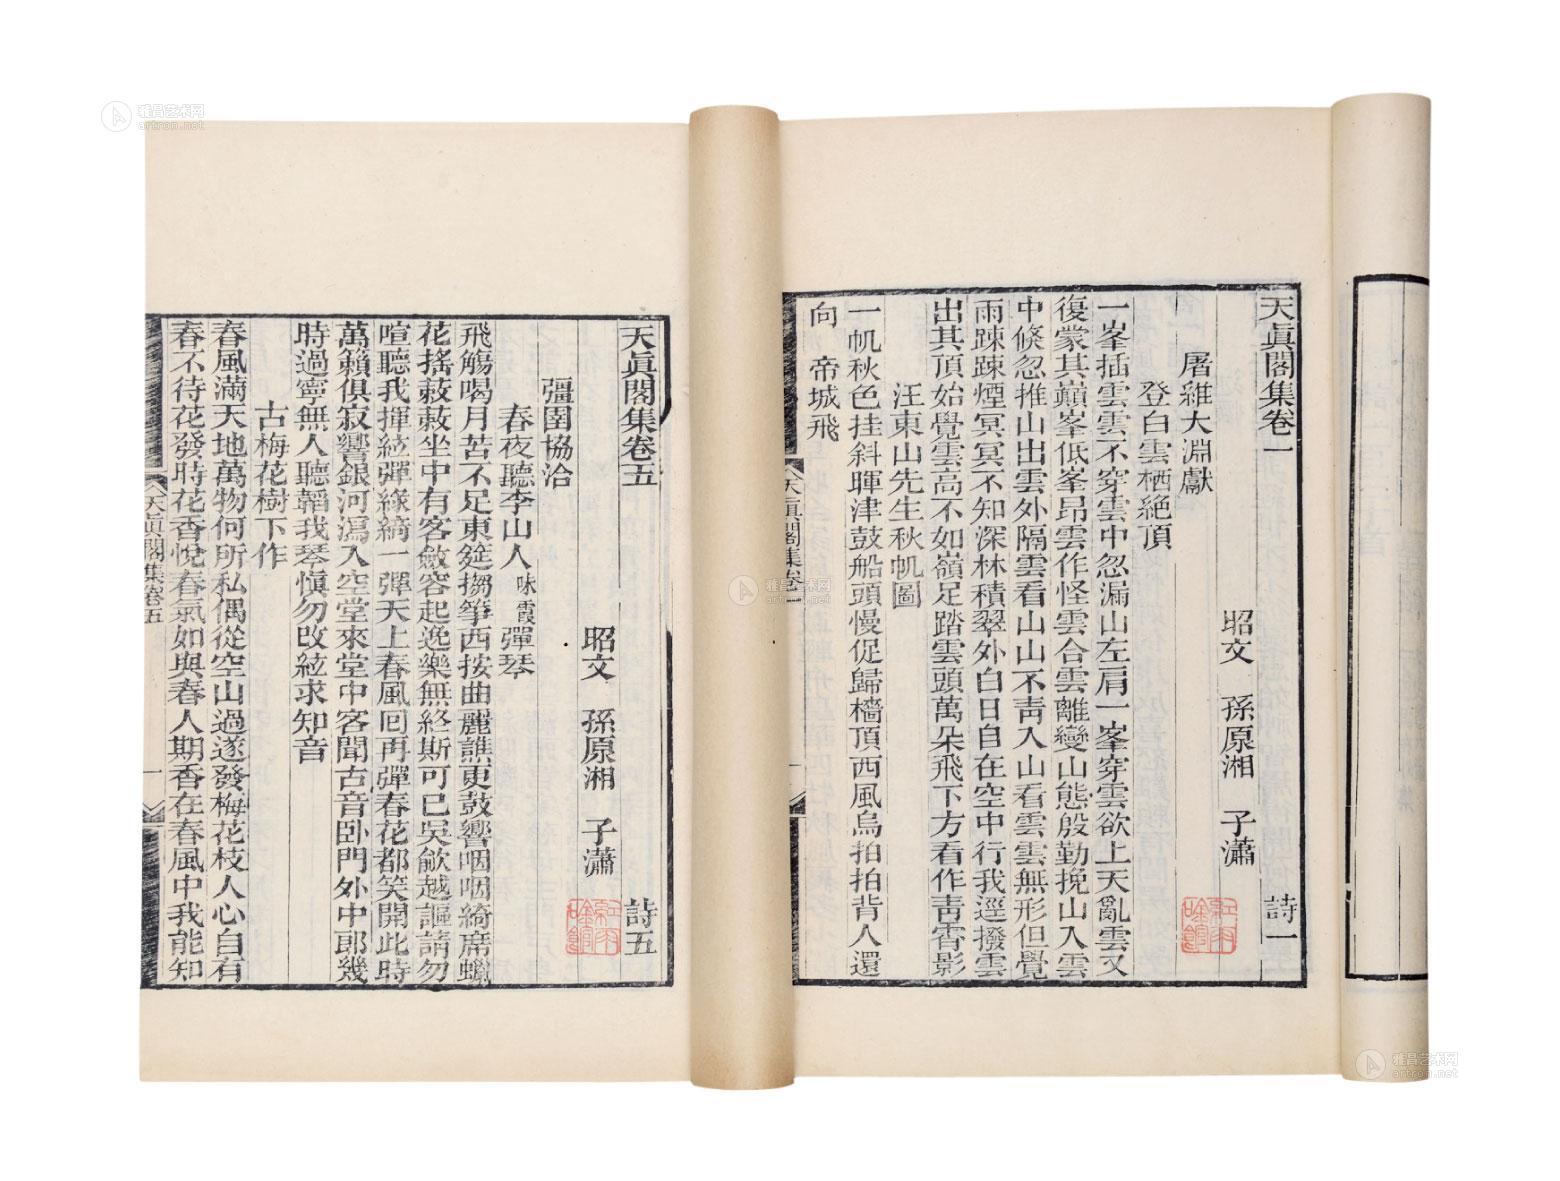 天眞閣集卷一 詩一
昭文 孫原湘 子瀟
屠維大淵獻
登白雲栖絕頂
一峯插雲雲不穿雲中忽漏山左肩一峯穿雲欲上天亂雲又
復蒙其巔峯低峯昂雲作怪雲合雲離變山態殷勤挽山入雲
中倏忽推山出雲外隔雲看山山不靑入山看雲雲無形但覺
雨踈踈煙冥冥不知深林積翠外白日自在空中行我逕撥雲
出其頂始覺雲高不如嶺足踏雲頭萬朵飛下方看作靑霄影
汪東山先生秋帆圖
一帆秋色挂斜暉津鼓船頭慢促歸檣頂西風烏拍拍背人還
向 帝城飛
天眞閣集卷一
天眞閣集卷五 詩五
昭文 孫原湘 子瀟
彊圉協洽
春夜聽李山人味霞彈琴
飛觴喝月苦不足東筵搊箏西按曲麗譙更鼓響咽咽綺席蠟
花搖蔌蔌坐中有客斂容起逸樂無終斯可已吳歈越謳請勿
喧聽我揮絃彈綠綺一彈天上春風囘再彈春花都笑開此時
萬籟俱寂響銀河瀉入空堂來堂中客聞古音臥門外中郎幾
時過寧無人聽韜我琴愼勿改絃求知音
古梅花樹下作
春風滿天地萬物何所私偶從空山過遂發梅花枝人心自有
春不待花發時花香悅春氣如與春人期香在春風中我能知
天眞閣集卷五
一
雅昌艺术网
artron.net
雅昌艺术网
artron.net
雅昌艺术网
artron.net